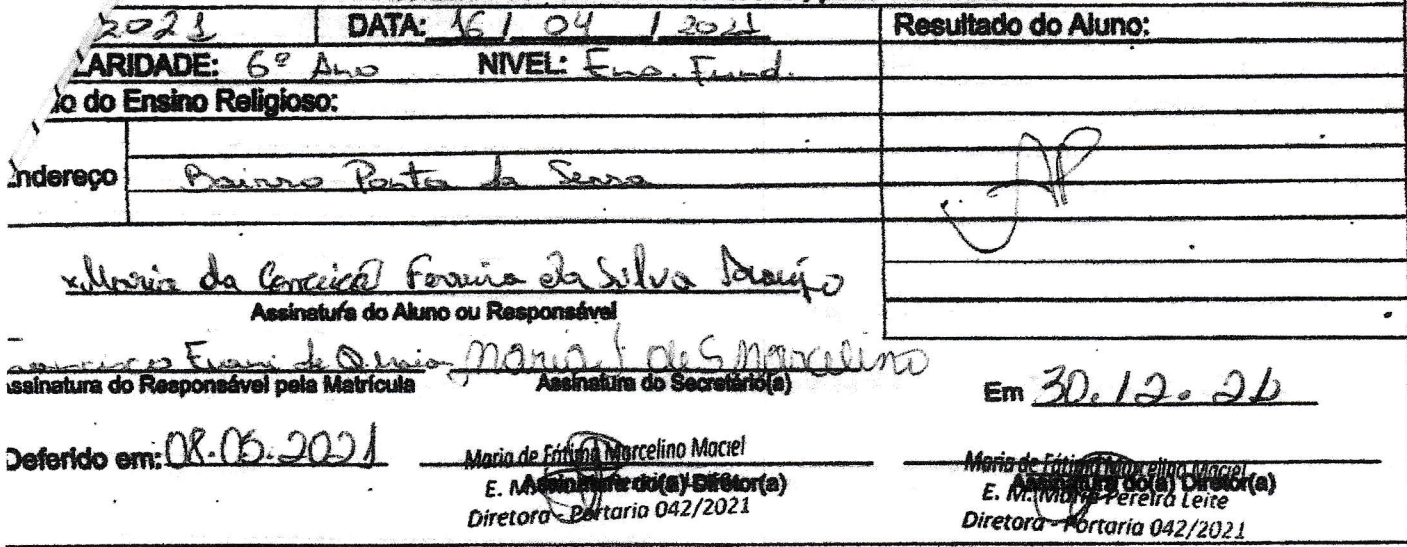 2021 DATA: 16 / 04 / 2021 Resultado do Aluno:
LARIDADE: 6º Ano NIVEL: Ens. Fund.
do Ensino Religioso:
Endereço Bairro Ponta da Serra
AP
x Maria da Conceição Ferreira da Silva Araújo
Assinatura do Aluno ou Responsável
Francisco Erani de Maria J. de S Marcelino
Assinatura do Responsável pela Matrícula Assinatura do Secretário(a)
Em 30.12.21
Deferido em: 08.05.2021
Maria de Fátima Marcelino Maciel
Assinatura do(a) Diretor(a)
E. M.
Diretora - Portaria 042/2021
Maria de Fátima Marcelino Maciel
Assinatura do(a) Diretor(a)
E. M. Maria Pereira Leite
Diretora - Portaria 042/2021